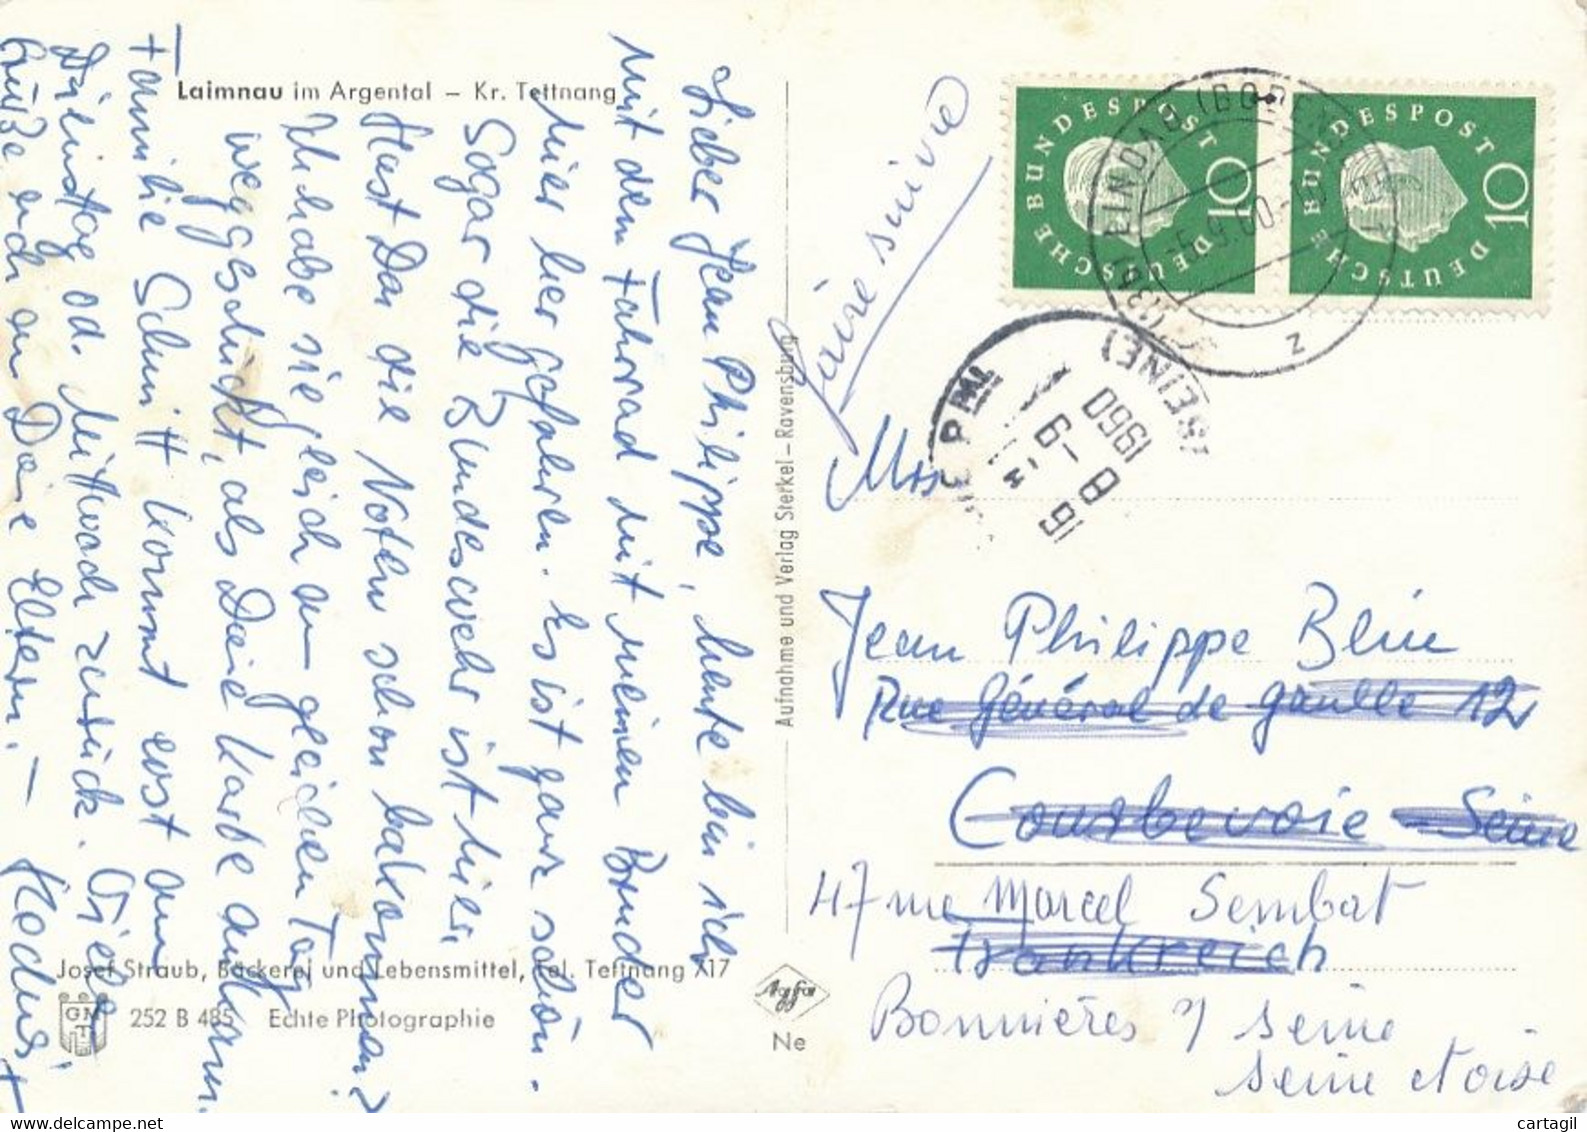 Laimnau im Argental – Kr. Tettnang
Lieber Jean Philippe, heute bin ich
mit dem Fahrrad mit meinem Bruder
hier her gefahren. Es ist ganz schön.
Sogar die Bundeswehr ist hier.
Hast Du die Noten schon bekommen?
Ich habe sie gleich am gleichen Tag
weggeschickt, als Deine Karte ankam.
Familie Schmitt kommt erst am
Dienstag od. Mittwoch zurück. Viele
Grüße auch an Deine Eltern. –
Josef Straub, Bäckerei und Lebensmittel, Tel. Tettnang 717
252 B 485 Echte Photographie
Aufnahme und Verlag Sterkel – Ravensburg
Agfa
Ne
faire suivre
DEUTSCHE BUNDESPOST
10
DEUTSCHE BUNDESPOST
10
LINDAU (BODENSEE)
-5.9.60
z
(SEINE)
16 H
8 - 9
1960
Jean Philippe Blin
Rue Général de Gaulle 12
Courbevoie - Seine
47 rue Marcel Sembat
Frankreich
Bonnières s/ Seine
Seine et Oise